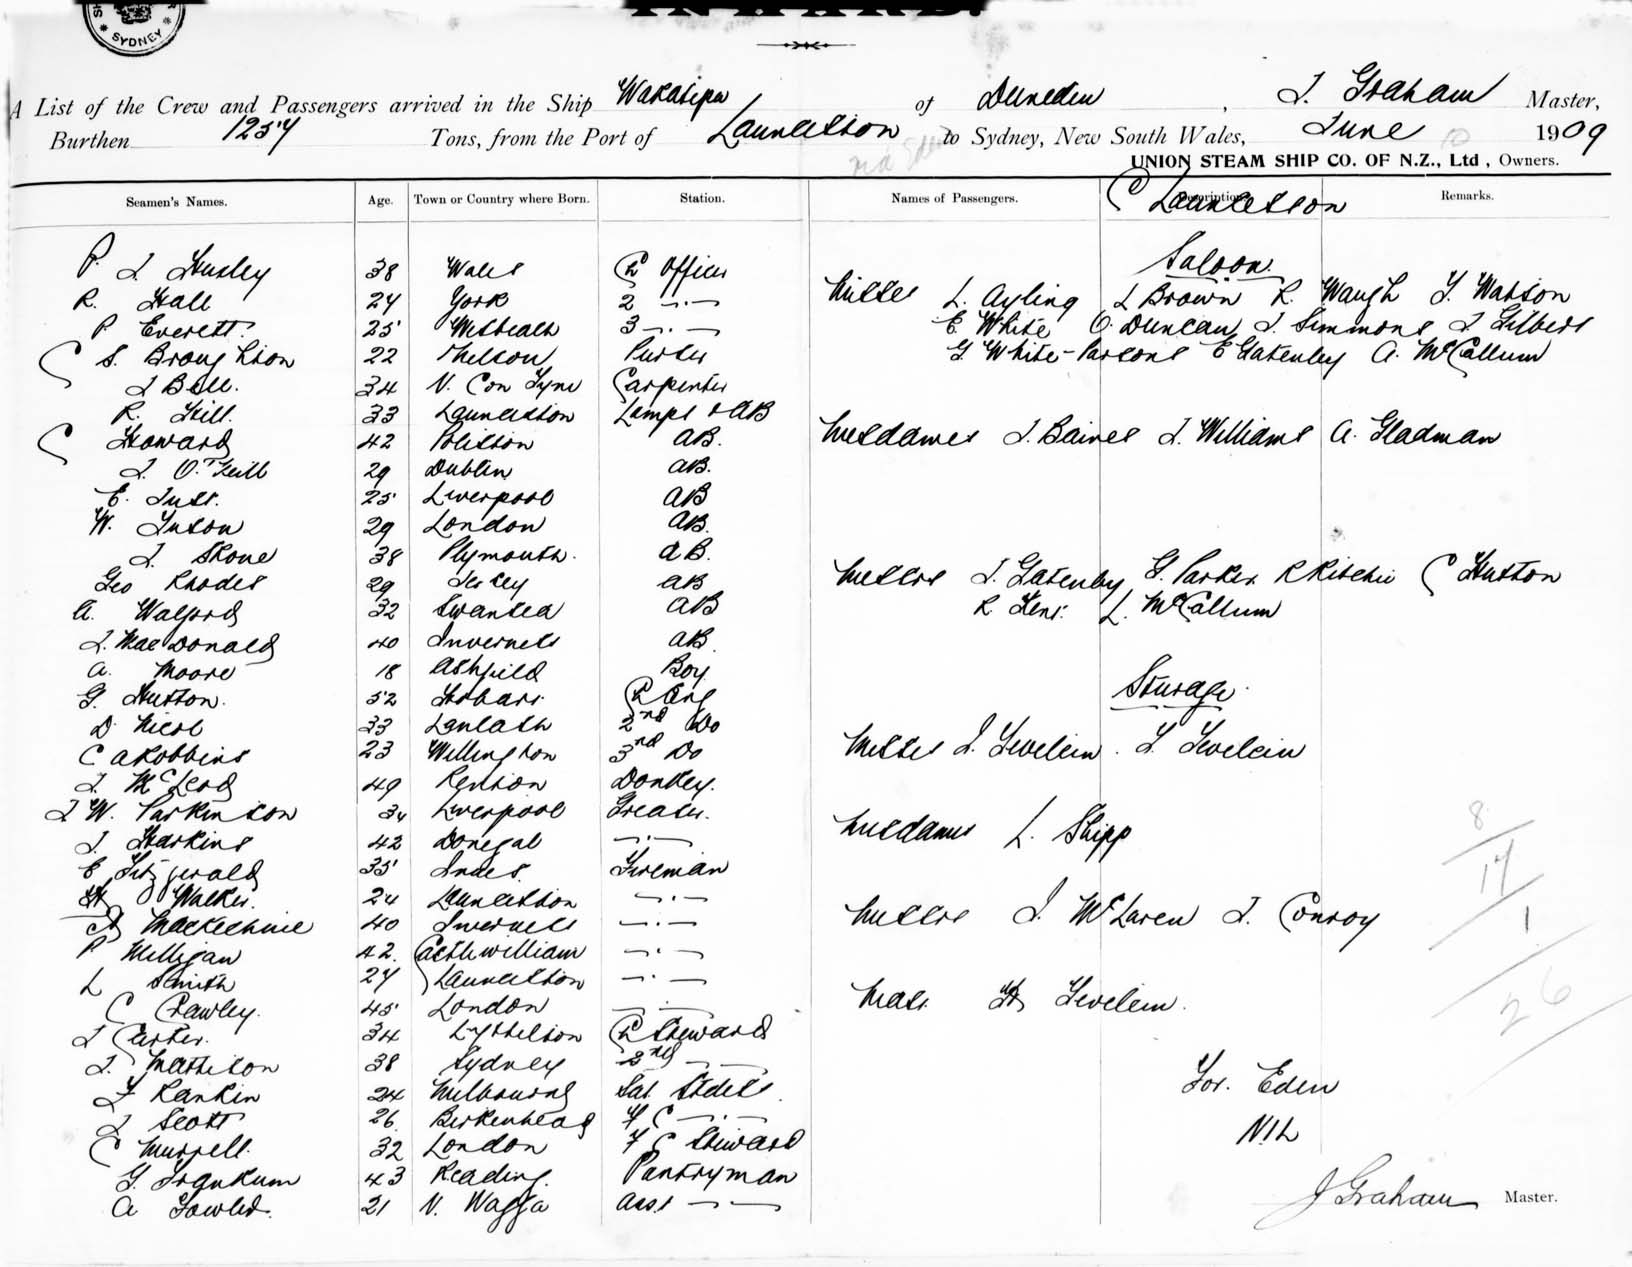 SYDNEY
INWARD.
A List of the Crew and Passengers arrived in the Ship Wakatipu of Dunedin, J. Graham Master,
Burthen 1257 Tons, from the Port of Launceston to Sydney, New South Wales, June 10 1909
via Eden
UNION STEAM SHIP CO. OF N.Z., Ltd, Owners.
Seamen's Names. Age. Town or Country where Born. Station. Names of Passengers. Description. Remarks.
Launceston
38 Wales Ch Officer
R. Hall 24 York 2 -.-
P Everett. 25 3 -.-
S. Broughton 22 Nelson Purser
J Bell. 34 N. Con Tyne Carpenter
R. Hill. 33 Launceston Lamps & AB
C Howard 42 AB.
J. O'Neill 29 Dublin AB.
E. Just. 25 Liverpool AB
W. 29 London AB.
J. Skone 38 Plymouth. AB.
Geo Rhodes 29 Jersey AB
A. Walford 32 Swansea AB
J. MacDonald 40 Inverness AB.
A. Moore 18 Ashfield Boy
G. Hutton. 52 Hobart Ch Eng
D. Nicol 33 2nd Do
C A Robbins 23 Wellington 3rd Do
J. McLeod 49 Renton Donkey.
J W. Parkinson 34 Liverpool Greaser.
J. Harkins 42 Donegal -.-
E Fitzgerald 35 Indies. Fireman
H Walker. 24 Launceston -.-
A Mackechnie 40 Inverness -.-
P Milligan 42. Castlewilliam -.-
L Smith 27 Launceston -.-
C Crawley. 45 London -.-
J Carter. 34 Lyttelton Ch Steward
J. Mathison 38 Sydney 2nd -.-
F Rankin 24 Melbourne Sal. Stdess.
J Scott 26. Birkenhead F C -.-
C Murrell. 32 London F C Steward
G. Frankum 43 Reading. Pantryman
A Fowler. 21 N. Wagga Asst -.-
Saloon.
Misses L. Ayling L Brown R. Waugh Y. Watson
E. White O. Duncan J. Simmons J Gilbert
G White-Parsons E Gatenby A. McCallum
Mesdames J. Baines J. Williams A. Gladman
Messrs J. Gatenby G. Parker R Ritchie C Hutton
R Kent L. McCallum
Steerage.
Misses
Mesdames L. Shipp
Messrs J. McLaren J. Conroy
Mast. H
8
17
1
26
For. Eden
NIL
J Graham Master.